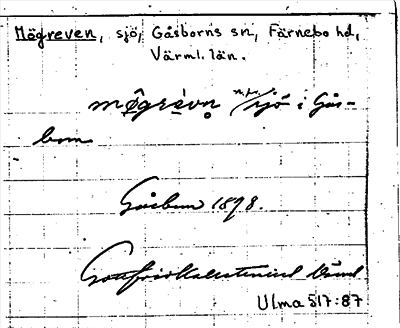 Mögreven, sjö, Gåsborns sn, Färnebo hd,
Värml. län.
mögrèvn sjö i Gås-
born
Gåsborn 1898.
Gottfrid Kallstenius
Ulma 517:87